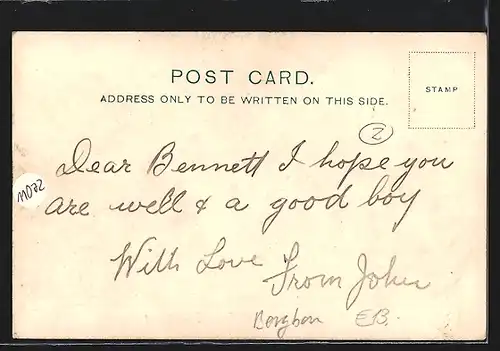 POST CARD.
ADDRESS ONLY TO BE WRITTEN ON THIS SIDE.
STAMP
2
Dear Bennett I hope you
are well & a good boy
With Love From John
EB.